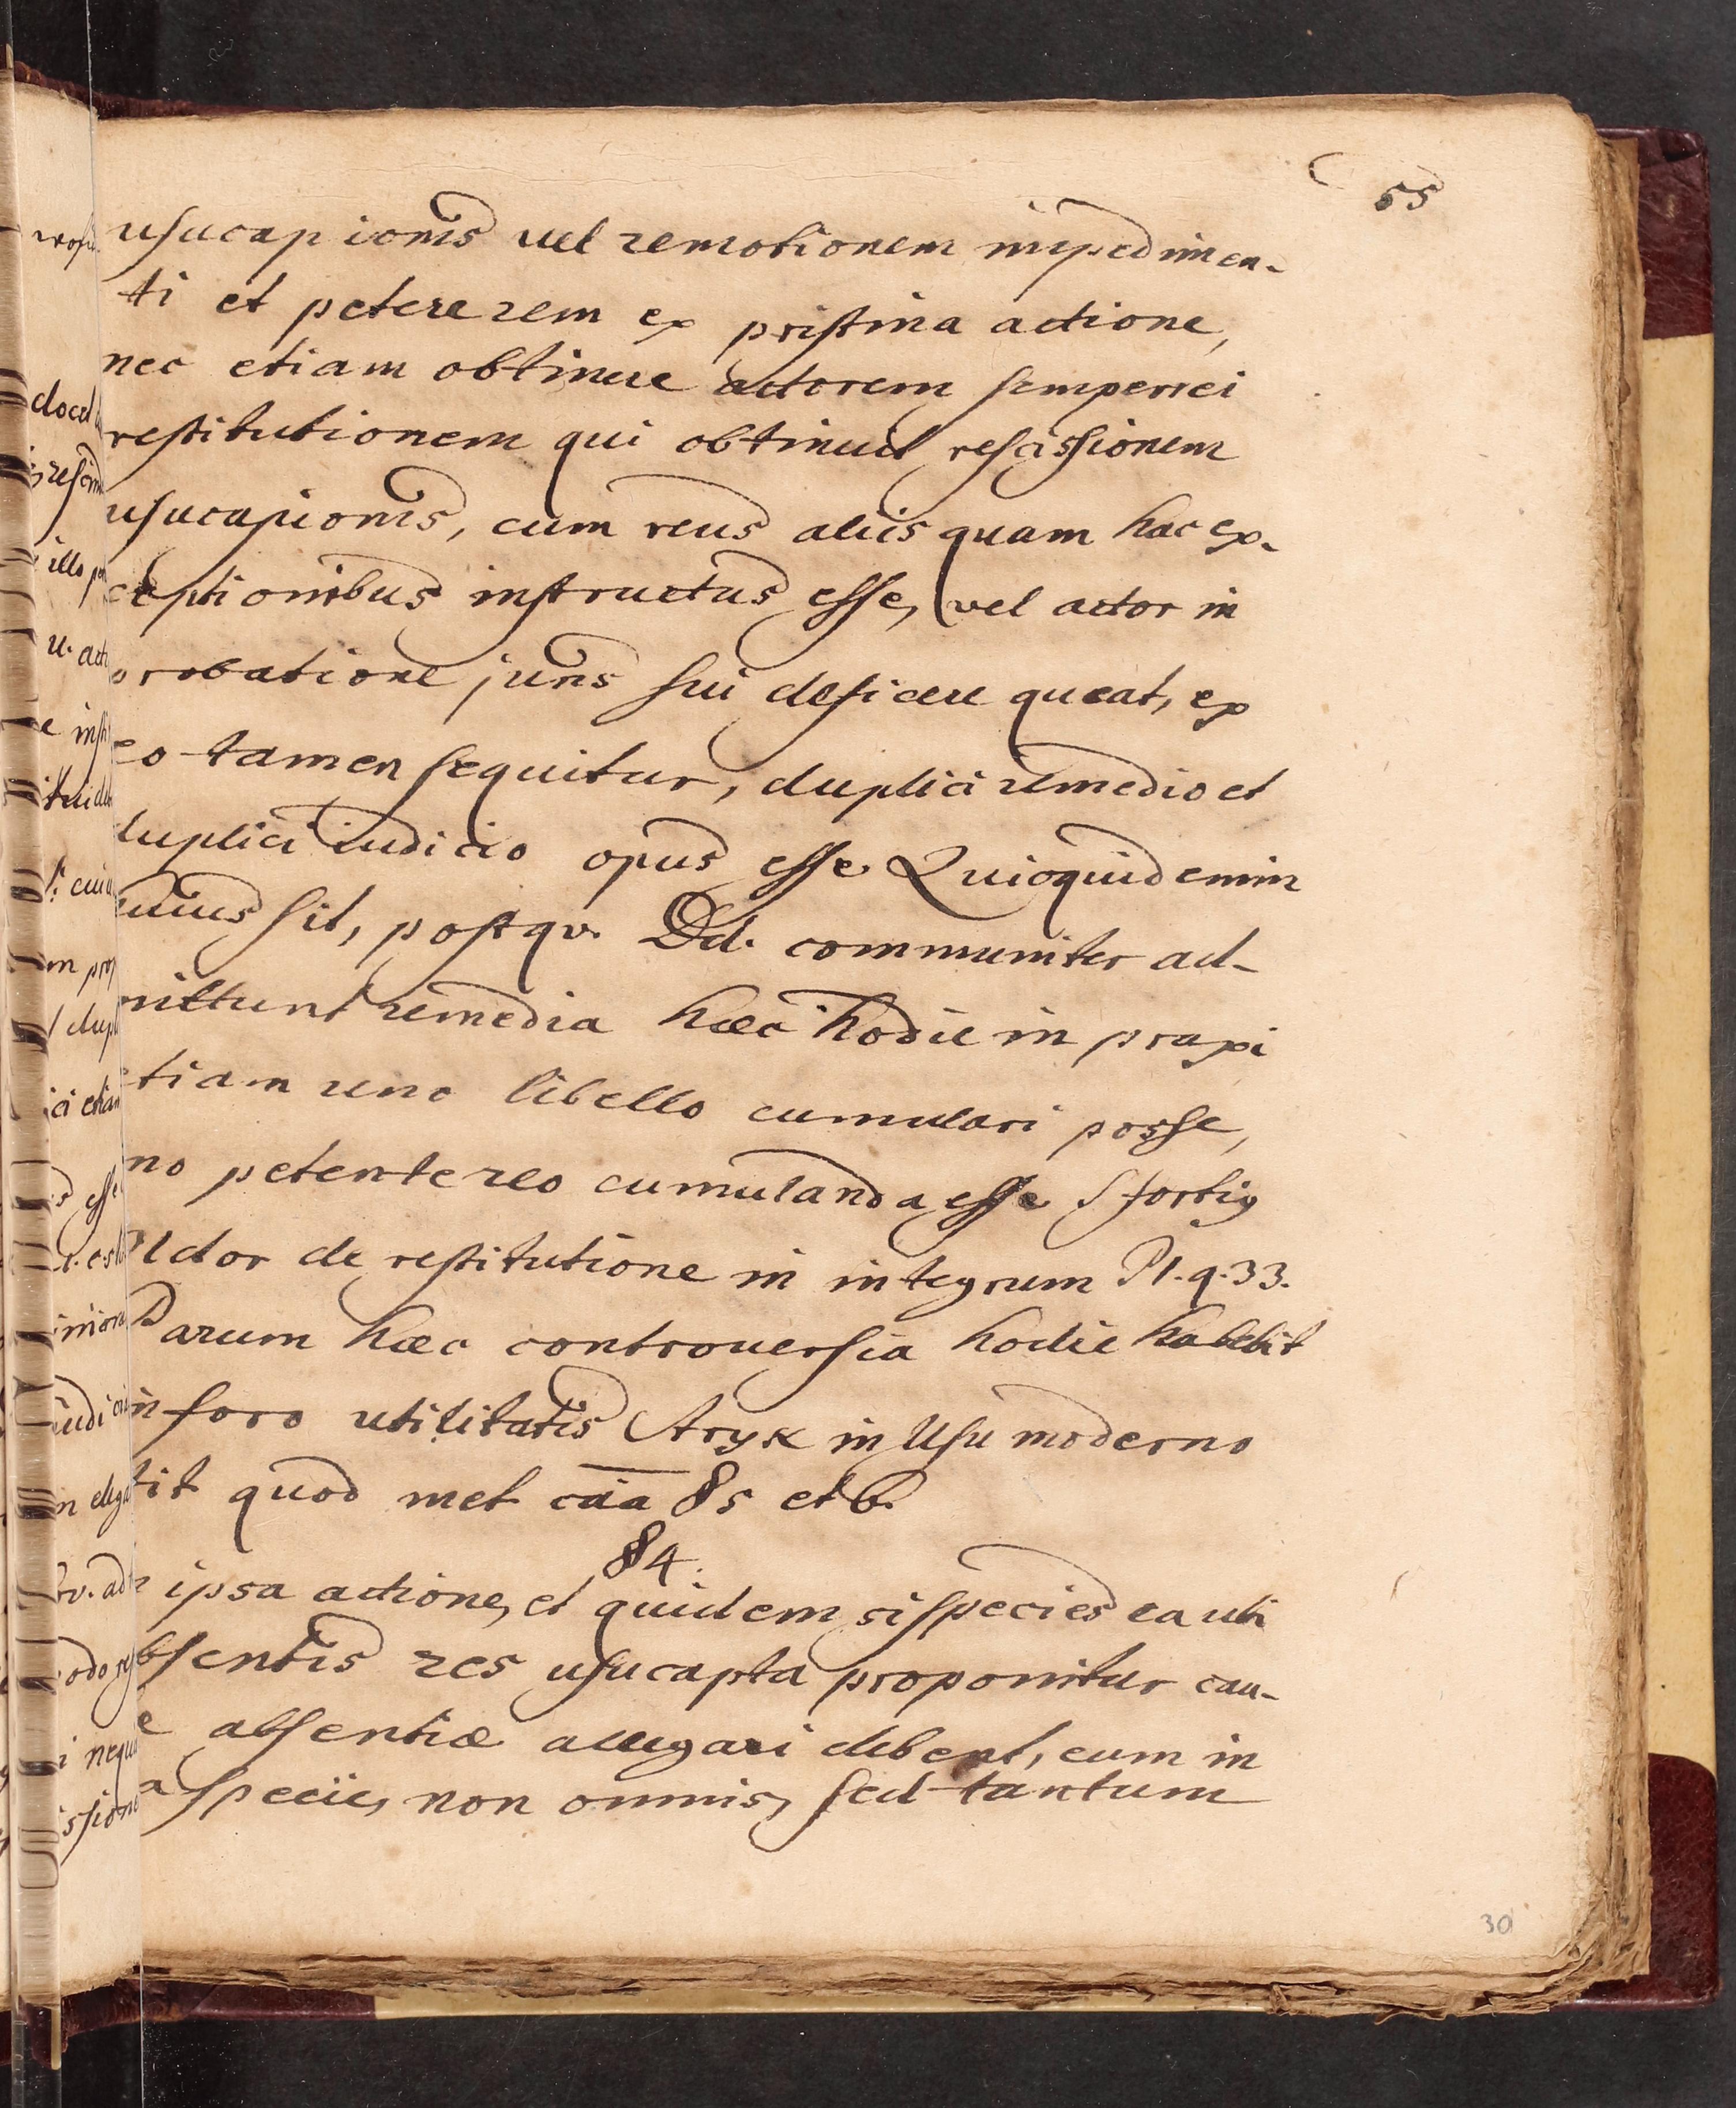 55
usucapionis vel remotionem impedimen-
ti et petere rem ex pristina actione,
nec etiam obtinere actorem semper rei
restitutionem qui obtinuit rescissionem
usucapionis, cum reus aliis quam hac ex-
ceptionibus instructus esse, vel actor in
probatione juris sui deficere queat, ex
eo tamen sequitur, duplici remedio et
duplici iudicio opus esse. Quicquid enim
huius sit, postqv. Dd. communiter ad-
mittunt remedia hæc hodie in praxi
etiam uno libello cumulari posse,
imo petente reo cumulanda esse
de restitutione in integrum P1. q. 33.
Parum hæc controversia hodie habebit
in foro utilitatis Stryk in Usu moderno
tit quod met caã §5 et 6.
§4.
ipsa actione, et quidem si species ea ubi
absentis res usucapta proponitur cau-
absentiæ allegari debent, cum in
a specie, non omnis, sed tantum
30